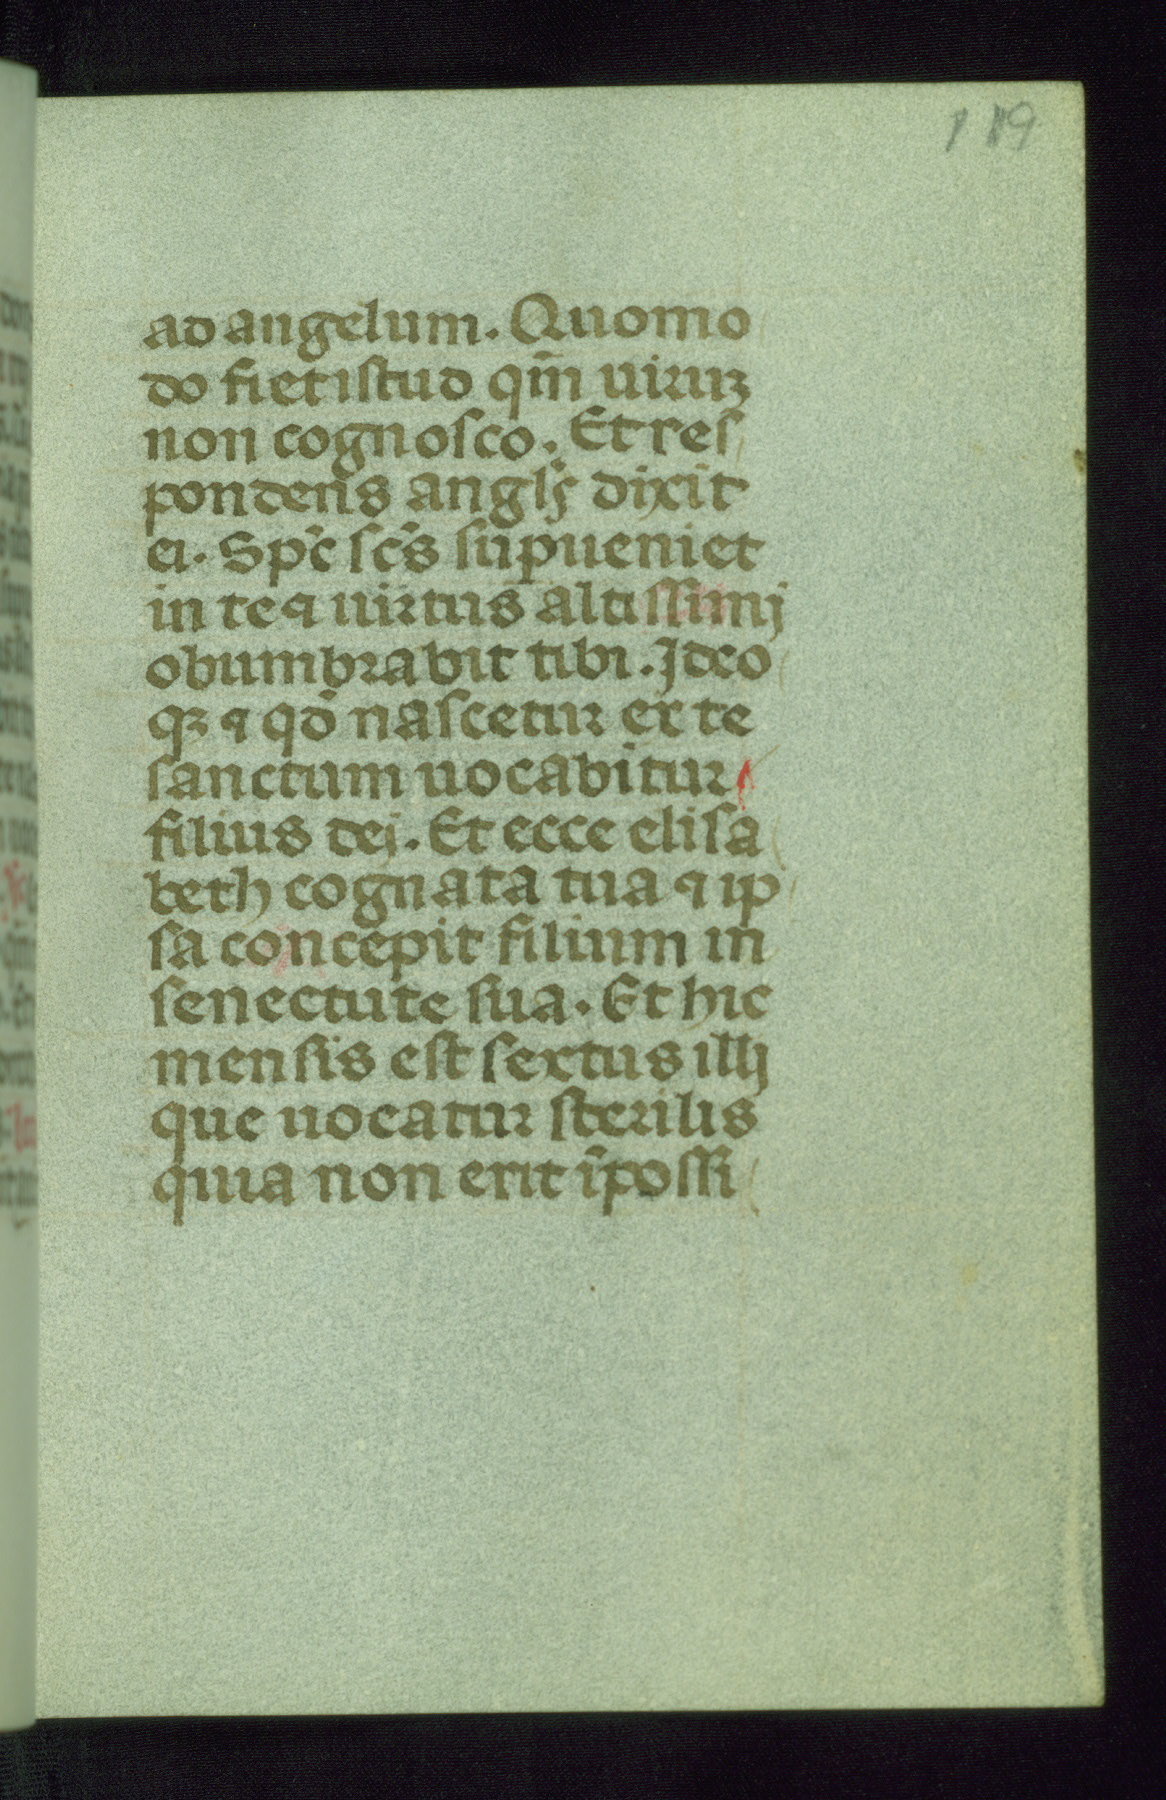 119
ad angelum. Quomo
do fiet istud qm̄ uiruꝫ
non cognosco. Et res
pondens angl's dixit
ei. Sp̄c sc̄s sup̄ueniet
in te ⁊ uirtus altissimj
obumbrabit tibi. Ideo
qꝫ ⁊ qd̄ nascetur ex te
sanctum uocabitur
filius dej. Et ecce elisa
beth cognata tua ⁊ ip
sa concepit filium in
senectute sua. Et hic
mensis est sextus illj
que uocatur sterilis
quia non erit īpossi